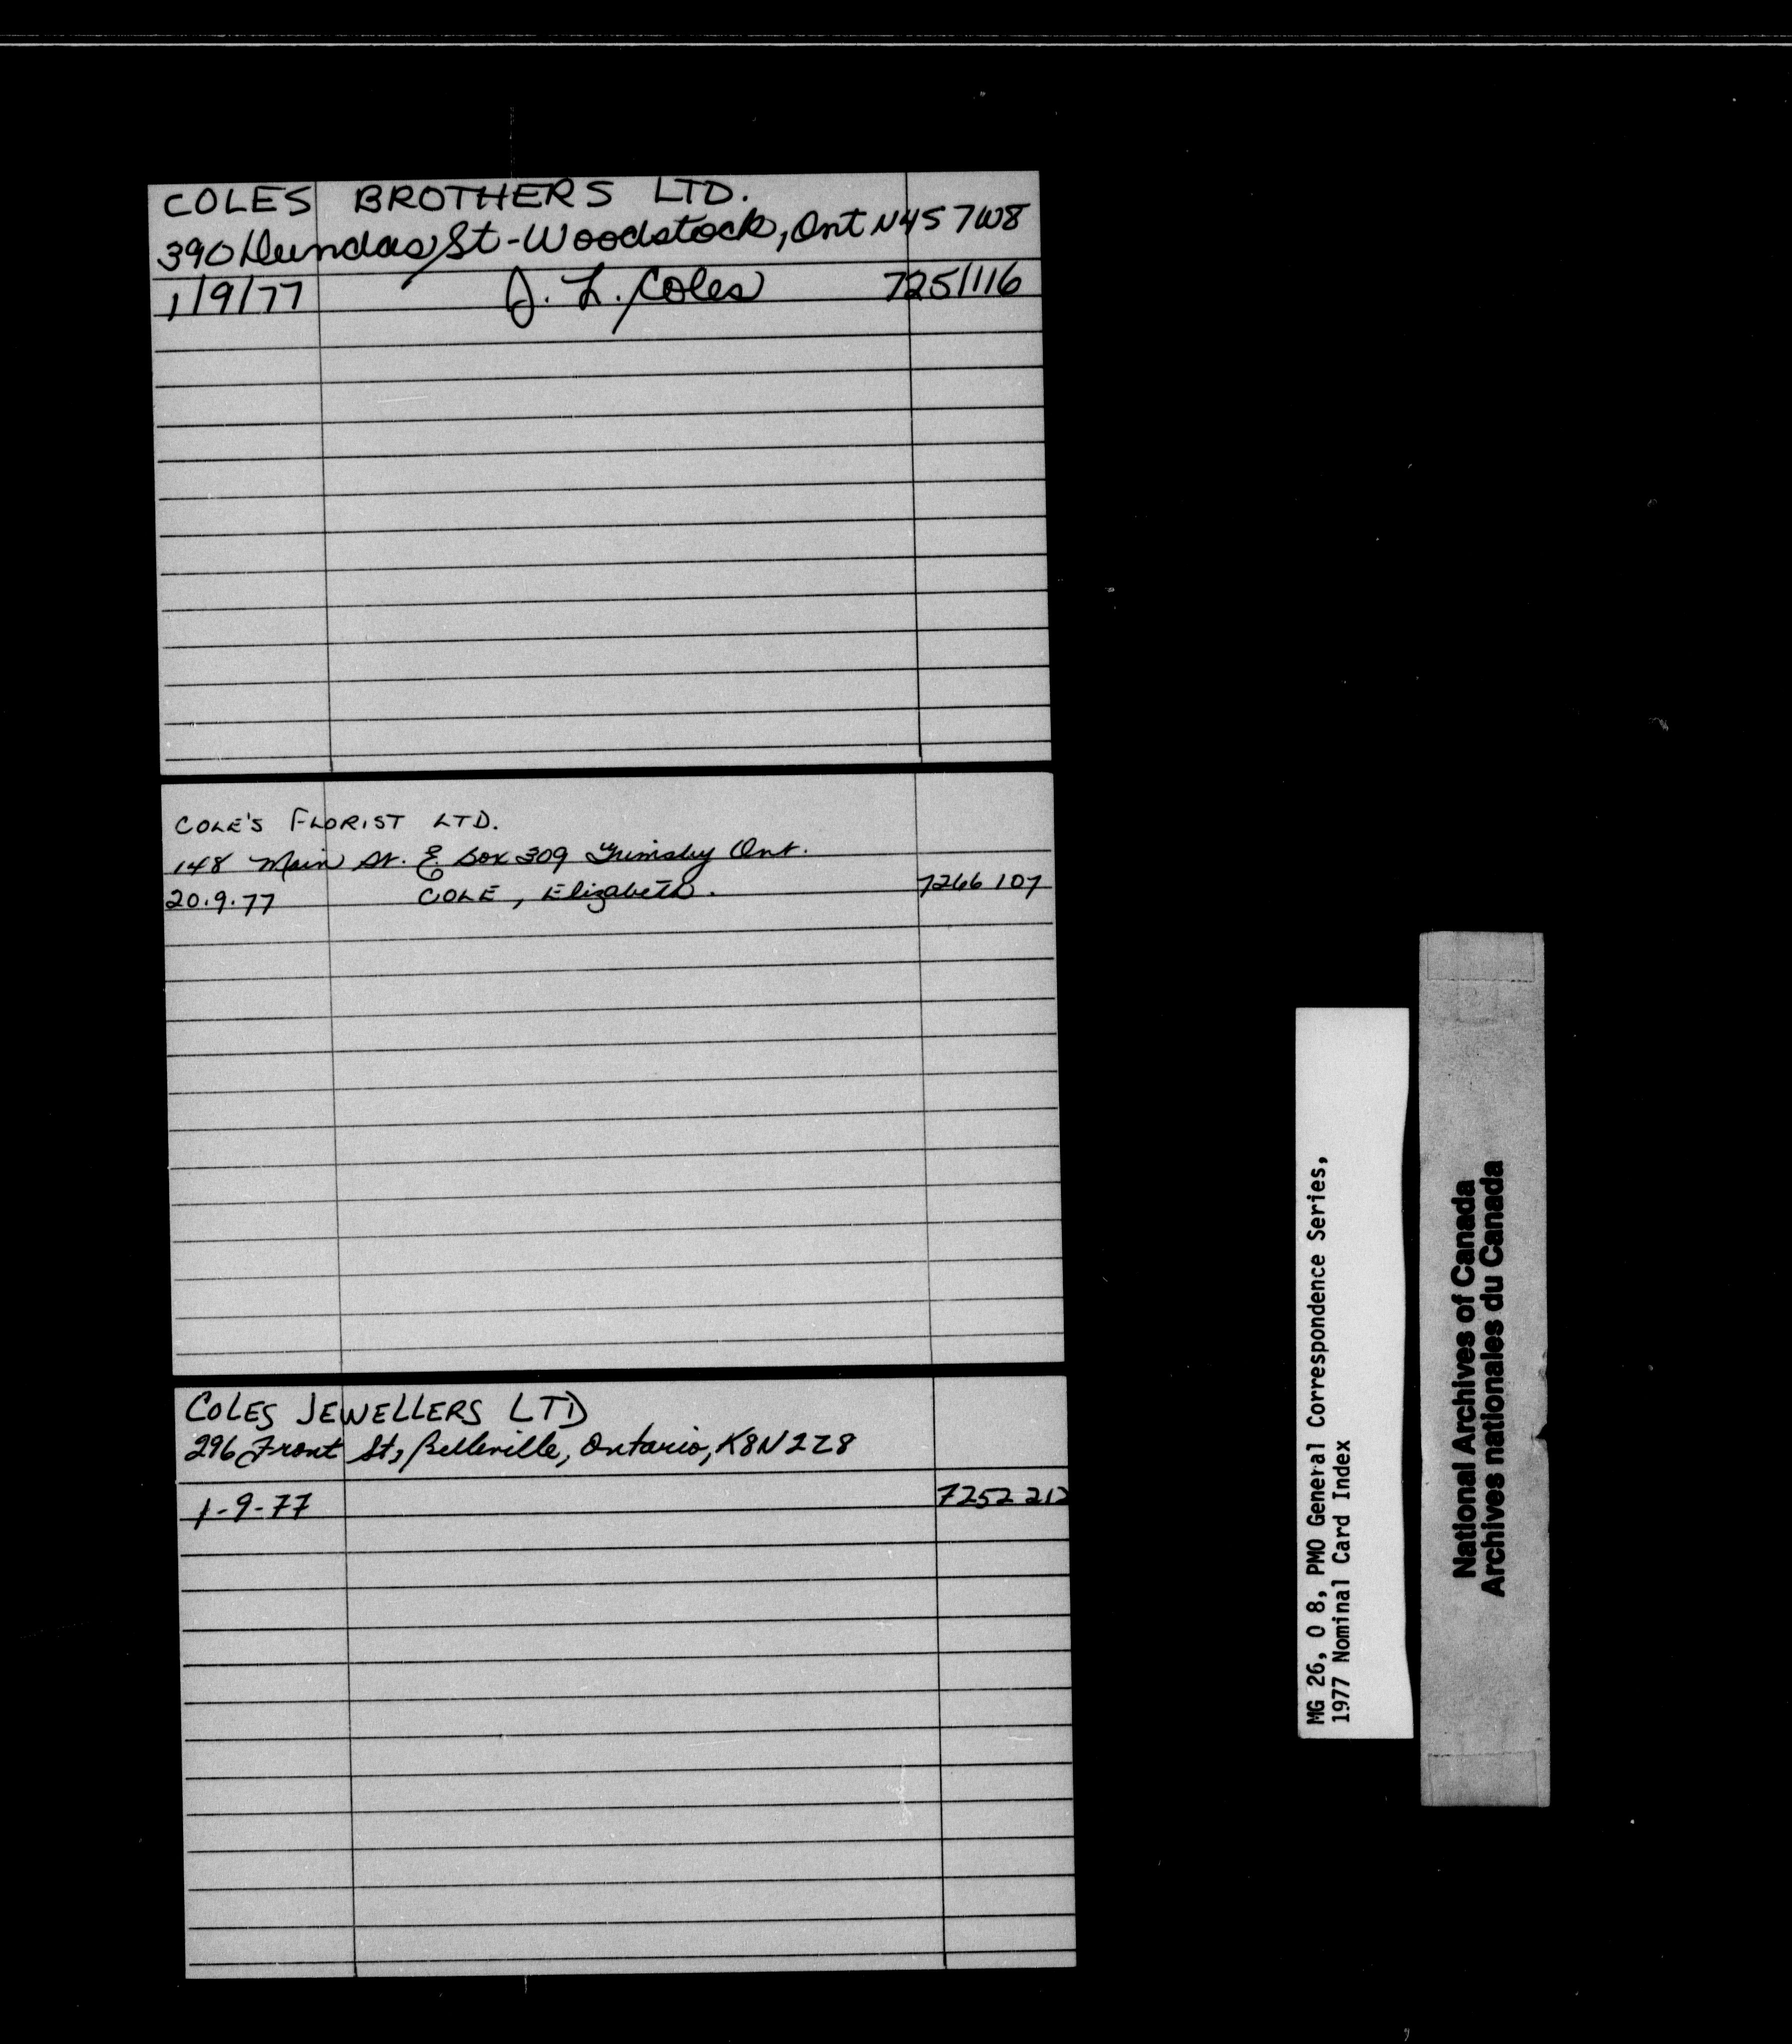 COLES BROTHERS LTD.
390 Dundas St-Woodstock, Ont N4S 7W8
1/9/77 J. L. Coles 7251116
COLE'S FLORIST LTD.
148 Main St. E. Box 309 Grimsby Ont.
20.9.77 COLE, Elizabeth. 7266 107
COLES JEWELLERS LTD
296 Front St, Belleville, Ontario, K8N 2Z8
1-9-77 7252 212
MG 26, O 8, PMO General Correspondence Series,
1977 Nominal Card Index
National Archives of Canada
Archives nationales du Canada